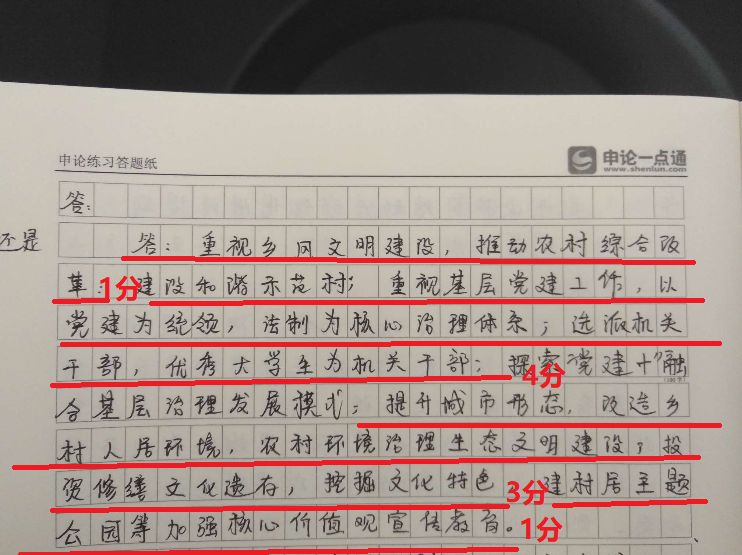 申论练习答题纸
申论一点通
www.shenlun.com
答：
还是
答：重视乡风文明建设，推动农村综合改
革：1分建设和谐示范村；重视基层党建工作，以
党建为统领，法制为核心治理体系；选派机关
干部，优秀大学生为机关干部；4分探索“党建+”融
(100字)
合基层治理发展模式；提升城市形态，改造乡
村人居环境，农村环境治理生态文明建设；投
资修缮文化遗存，挖掘文化特色3分建村居主题
公园等加强核心价值观宣传教育。1分